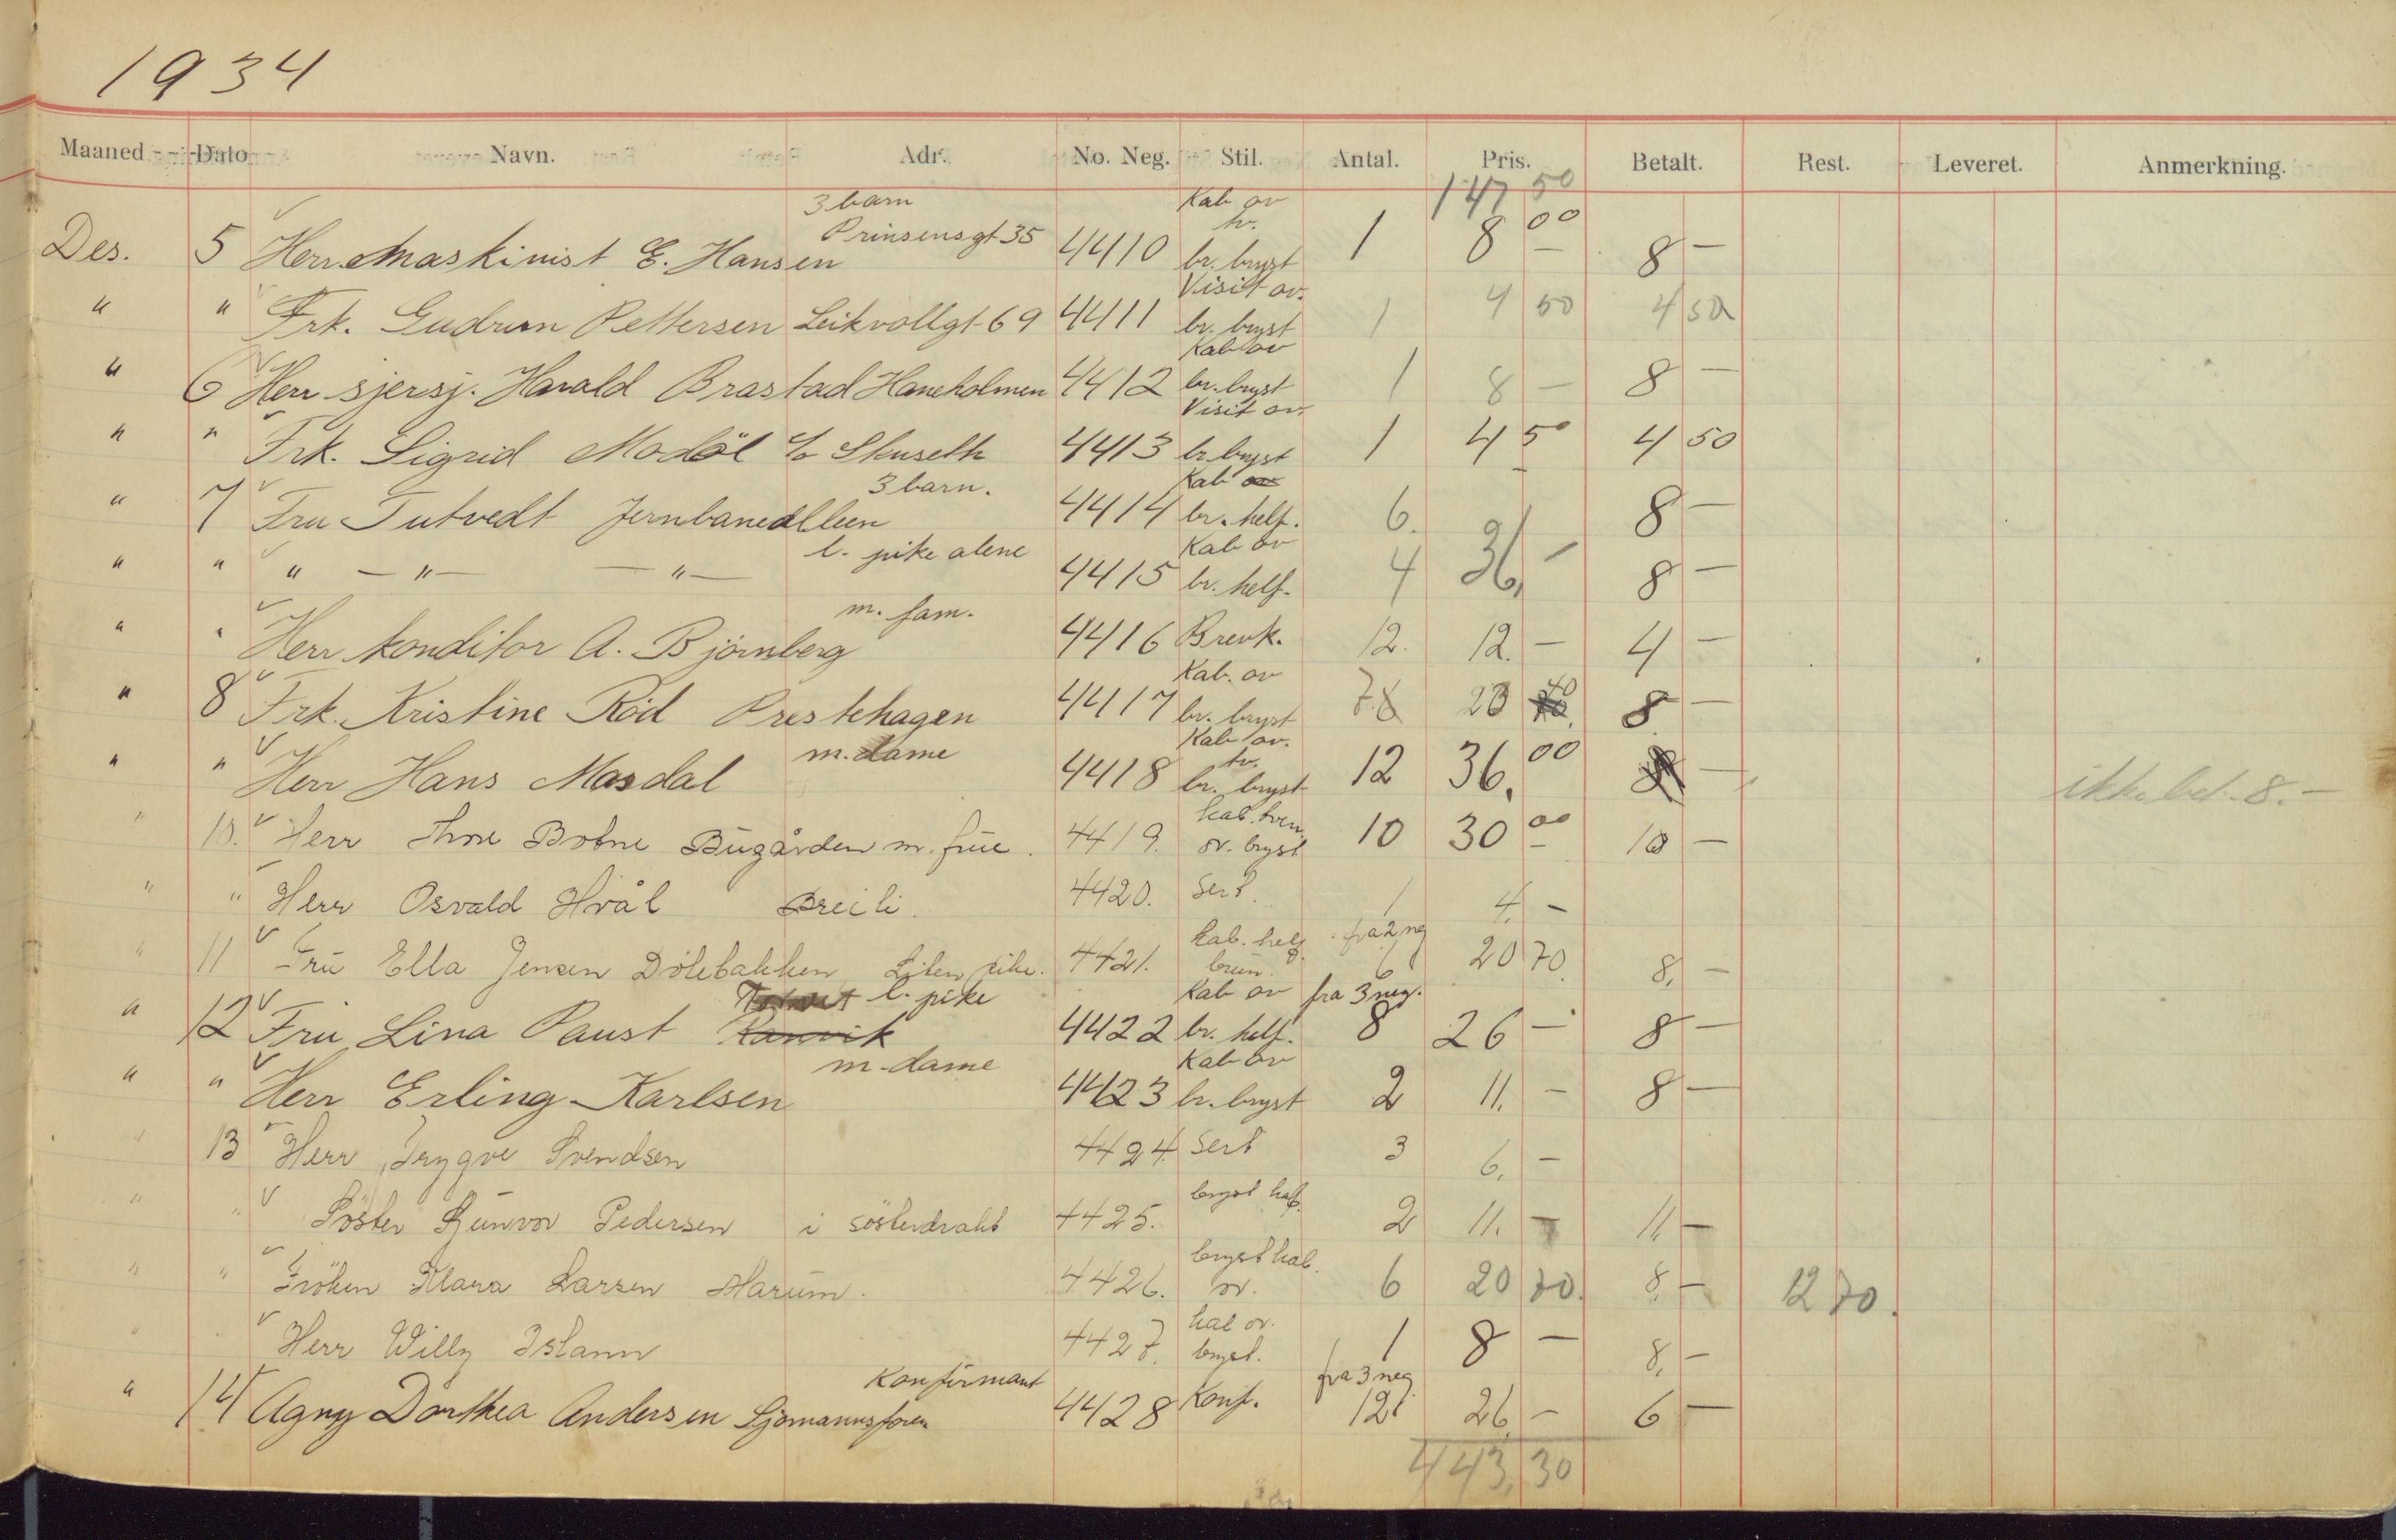 1934
Maaned Dato Navn. Adr. No. Neg. Stil. Antal. Pris. Betalt. Rest. Leveret. Anmerkning.
147 50
3 barn Kab ov
Prinsensgt 35 tv.
Des. 5 Herr Maskinist E. Hansen 4410 br. bryst 1 8 00 8 —
Visit ov.
" " Frk. Gudrun Pettersen Leikvollgt 69 4411 br. bryst 1 4 50 4 50
Kab ov
" 6 Herr sjersj. Harald Brastad Haneholmen 4412 br. bryst 1 8 — 8 —
Visit ov.
" " Frk. Sigrid Modål c/o Skuseth 4413 br. bryst 1 4 50 4 50
3 barn. Kab ov
" 7 Fru Tutvedt Jernbanealleen 4414 br. helf. 6. 8 —
l. pike alene Kab ov
" " " — " — — " — 4415 br. helf. 4 36, — 8 —
m. fam.
" " Herr konditor A. Björnberg 4416 Brevk. 12. 12. — 4 —
Kab. ov
" 8 Frk. Kristine Röd Prestehagen 4417 br. bryst 7. 8 20 40 8 —
m. dame Kab ov.
tv.
" " Herr Hans Masdal 4418 br. bryst 12 36. 00 8 — ikke bet. 8. —
kab. tven
" 10. Herr Thore Botne Bugården m. frue. 4419. ov. bryst 10 30 00 10 —
" " Herr Osvald Hvål Breili. 4420. Sert. 1 4. —
kab. helf. fra 2 neg
" 11 Fru Ella Jensen Dölebakken Liten pike. 4421. brun. 6 20 70 8. —
l. pike Kab ov fra 3 neg.
" 12 Fru Lina Paust Ranvik 4422 br. helf. 8 26 — 8 —
m. dame Kab ov
" " Herr Erling Karlsen 4423 br. bryst 2 11. — 8 —
" 13 Herr Trygve Svendsen 4424. Sert 3 6. —
bryst kab.
" " Söster Gunvor Pedersen i sösterdrakt 4425. 2 11. — 11 —
bryst kab.
" " Fröken Klara Larsen Marum. 4426. ov. 6 20 70. 8. — 12 70.
kab ov.
" " Herr Willy Islann 4427. bryst. 1 8 — 8. —
Konfirmant fra 3 neg
" 14 Agny Dorthea Andersen Sjömannsforen 4428 Konf. 12 26. — 6 —
443, 30